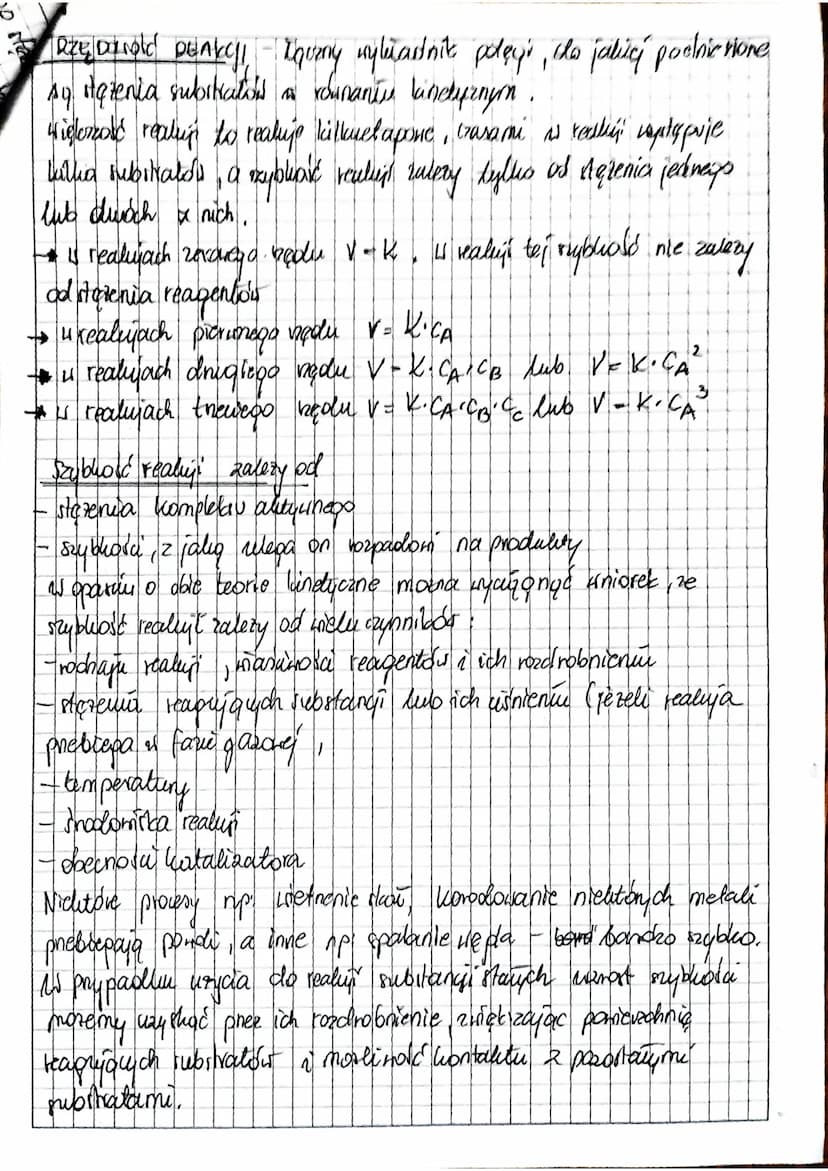 Rzędowość reakcji - łączny wykładnik potęgi, do jakiej podniesione
są stężenia substratów w równaniu kinetycznym.
Większość reakcji to reakcje kilkuetapowe, czasami w reakcji występuje
kilka substratów, a szybkość reakcji zależy tylko od stężenia jednego
lub dwóch z nich.
→ w reakcjach zerowego rzędu V = K. W reakcji tej szybkość nie zależy
od stężenia reagentów
→ w reakcjach pierwszego rzędu V = K·CA
→ w reakcjach drugiego rzędu V = K·CA·CB lub V = K·CA²
→ w reakcjach trzeciego rzędu V = K·CA·CB·Cc lub V = K·CA³
Szybkość reakcji zależy od
- stężenia kompleksu aktywnego
- szybkości, z jaką ulega on rozpadowi na produkty
W oparciu o obie teorie kinetyczne można wyciągnąć wniosek, że
szybkość reakcji zależy od wielu czynników:
- rodzaju reakcji, właściwości reagentów i ich rozdrobnieniu
- stężenia reagujących substancji lub ich ciśnieniu (jeżeli reakcja
przebiega w fazie gazowej,
- temperatury
- środowiska reakcji
- obecności katalizatora
Niektóre procesy np. wietrzenie skał, korodowanie niektórych metali
przebiegają powoli, a inne np. spalanie węgla - bardzo szybko.
W przypadku użycia do reakcji substancji stałych wzrost szybkości
możemy uzyskać przez ich rozdrobnienie, zwiększając powierzchnię
reagujących substratów i możliwość kontaktu z pozostałymi
substratami.